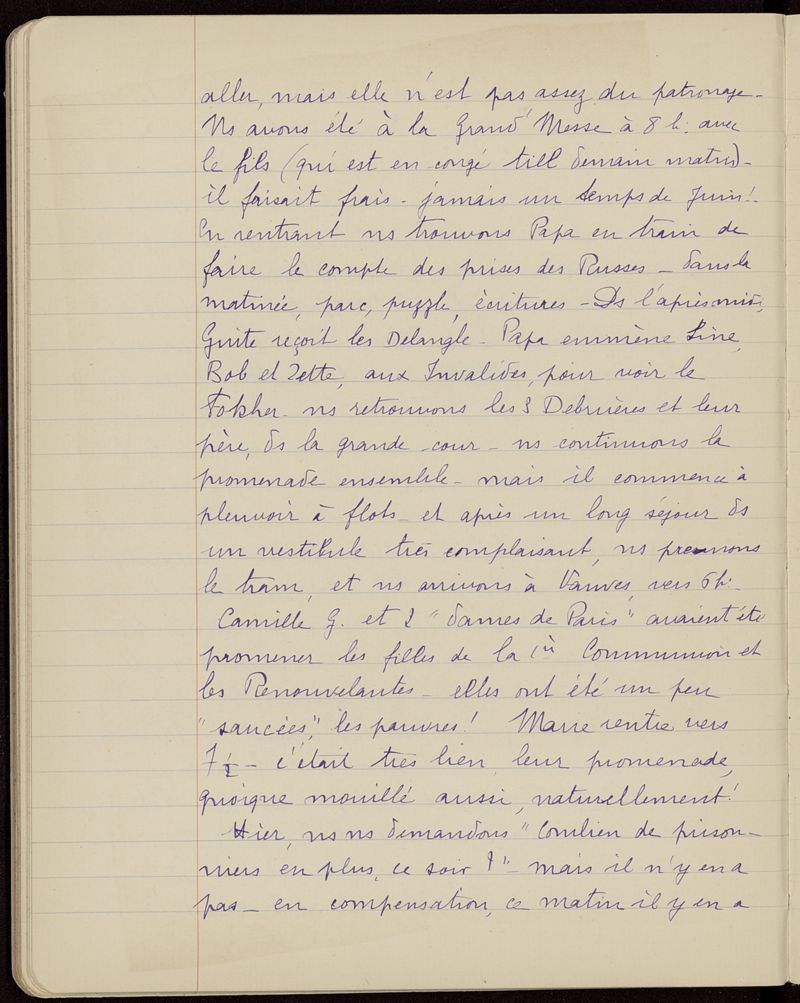 aller, mais elle n'est pas assez du patronage -
Ns avons été à la Grand'Messe à 8 h. avec
le fils (qui est en congé till demain matin) -
il faisait frais - jamais un temps de Juin! -
En rentrant ns trouvons Papa en train de
faire le compte des prises des Russes - dans la
matinée, parc, puzzle, écritures - Ds l'après midi,
Guite reçoit les Delangle - Papa emmène Line,
Bob et Zette, aux Invalides, pour voir le
Fokker - ns retrouvons les 3 Debrières et leur
père, ds la grande cour - ns continuons la
promenade ensemble - mais il commence à
pleuvoir à flots - et après un long séjour ds
un vestibule très complaisant, ns prenons
le tram, et ns arrivons à Vanves, vers 6h. -
Camille G. et 2 "dames de Paris" avaient été
promener les filles de la 1è Communion et
les Renouvelantes - elles ont été un peu
"saucées", les pauvres! Marie rentre vers
7 1/2 - c'était très bien, leur promenade,
quoique mouillé aussi, naturellement!
Hier, ns ns demandons "Combien de prison-
niers en plus, ce soir?" - mais il n'y en a
pas - en compensation, ce matin il y en a